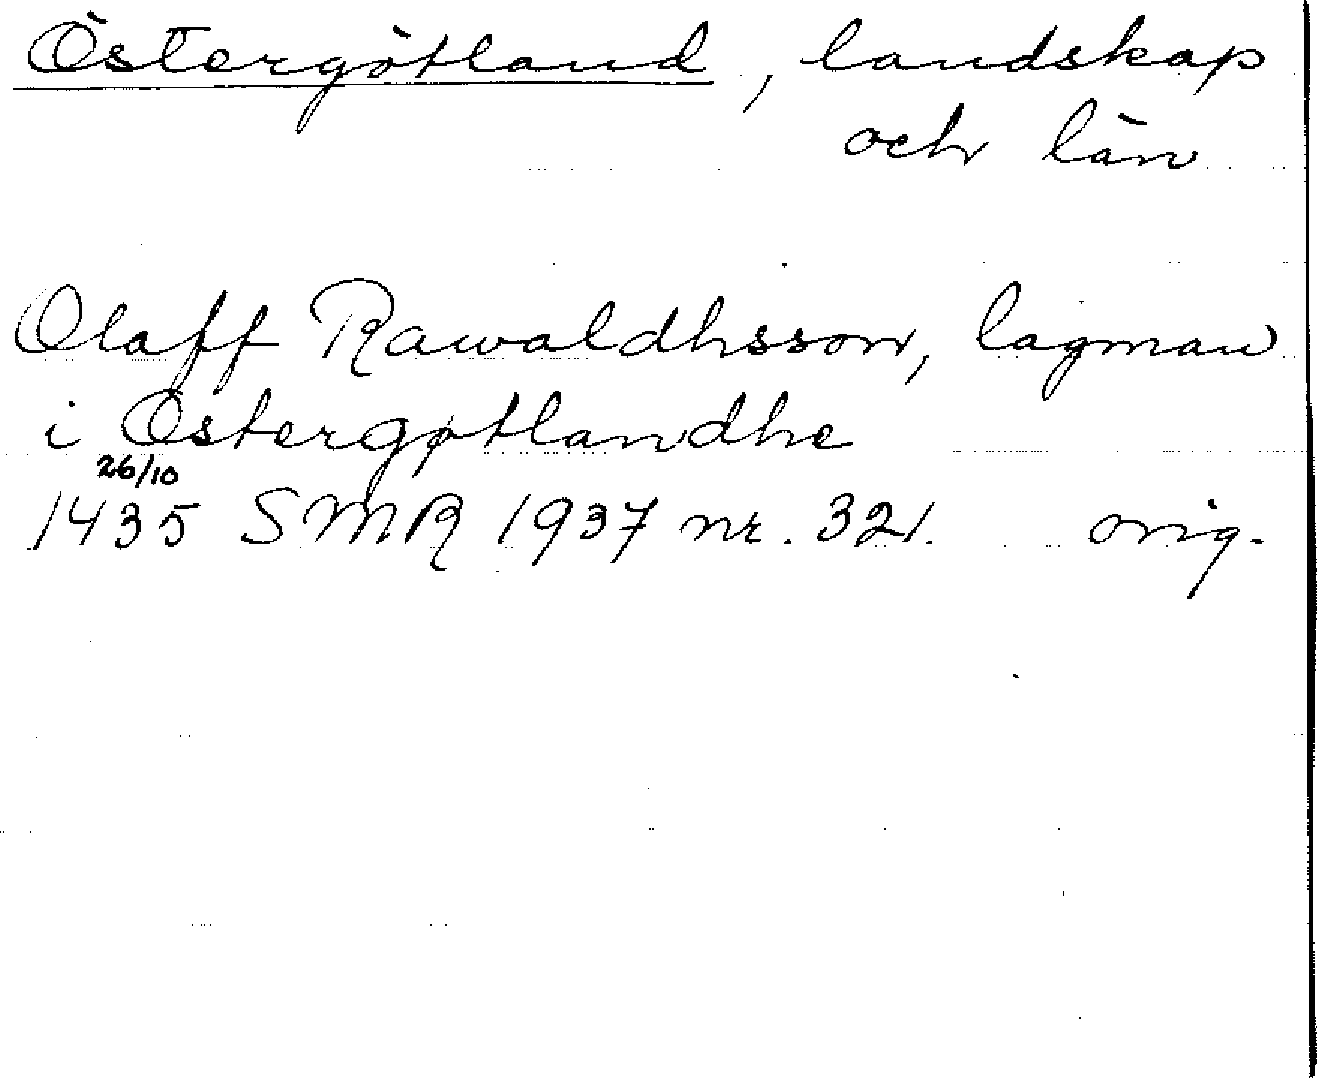 Östergötland, landskap
och län
Olaff Rawaldhsson, lagman
i Østergøtlandhe
26/10
1435 SMR 1937 nr. 321. orig.